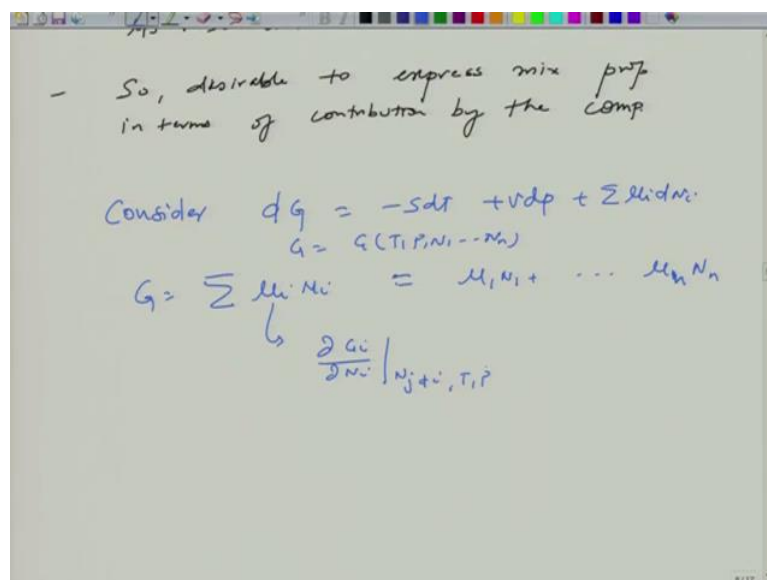 - So, desirable to express mix prop
in terms of contribution by the comp.
Consider dG = -SdT + Vdp + Σ μidNi
G = G(T, P, N1 --- Nn)
G = Σ μi Ni = μ1 N1 + ... μn Nn
∂Gi / ∂Ni | Nj≠i, T, P